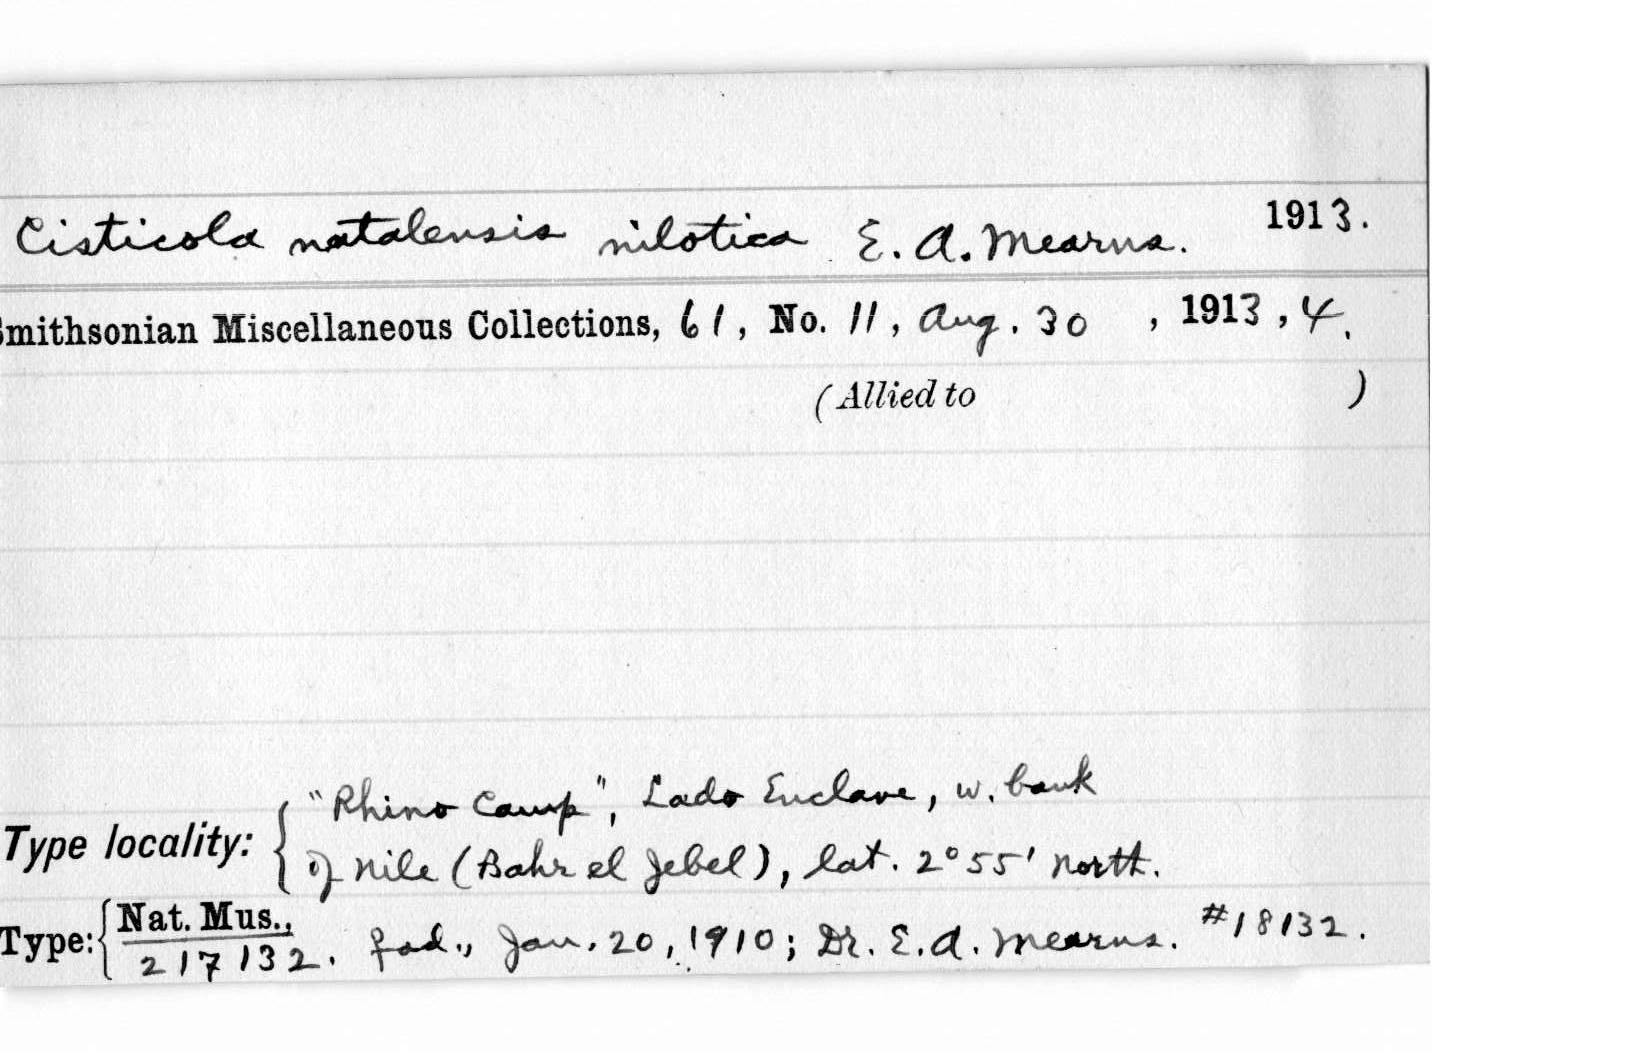 Cisticola natalensis nilotica E. A. Mearns. 1913.
Smithsonian Miscellaneous Collections, 61, No. 11, Aug. 30 , 1913, 4.
(Allied to )
"Rhino Camp", Lado Enclave, w. bank
Type locality:
of Nile (Bahr el Jebel), lat. 2°55' north.
Type: Nat. Mus., 217132. fad., Jan. 20, 1910; Dr. E. A. Mearns. #18132.